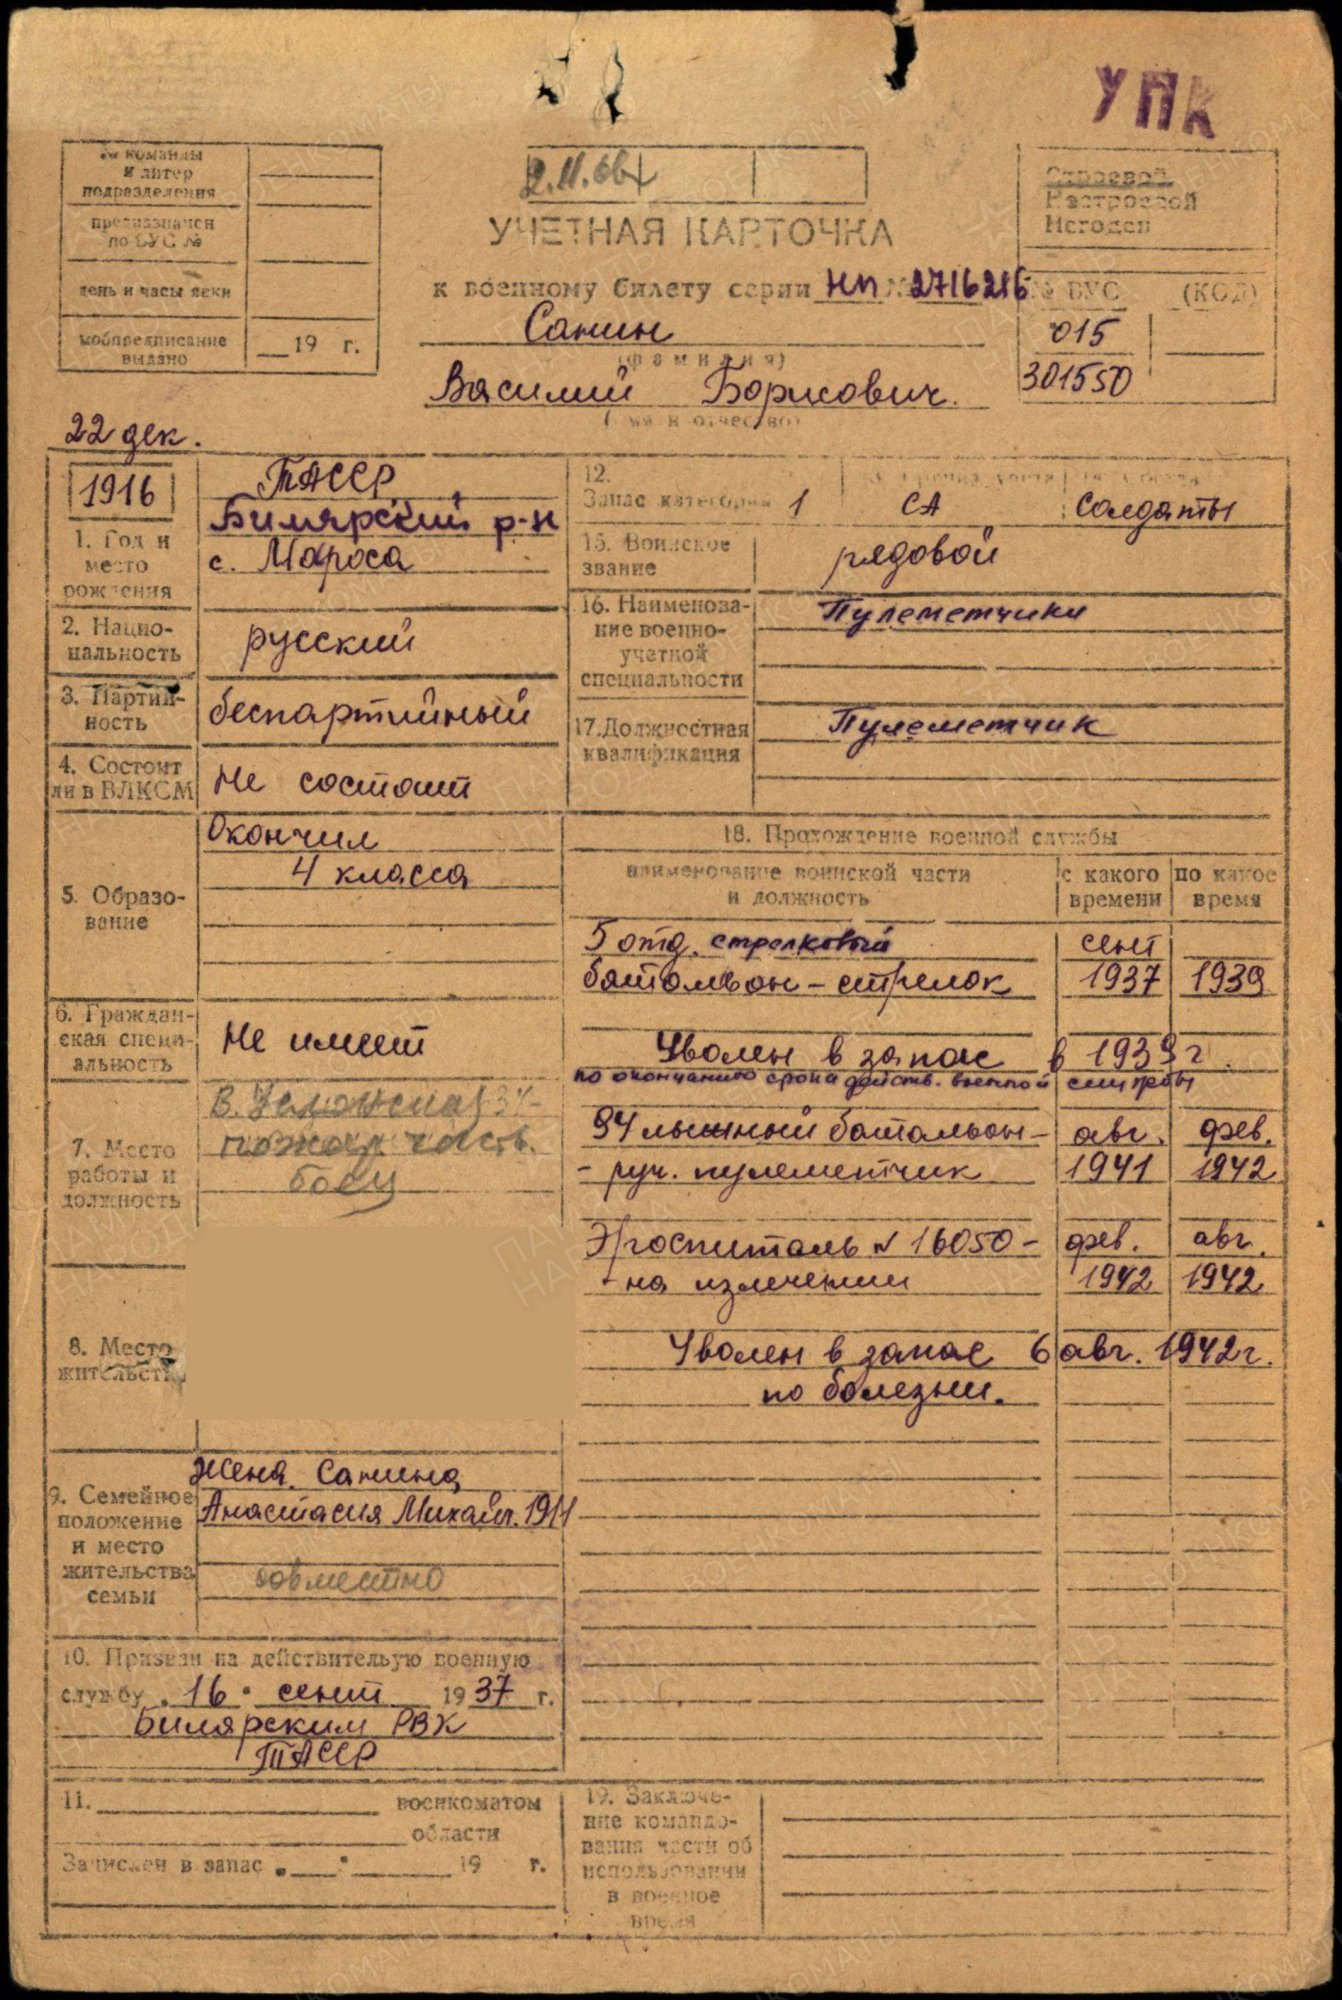 УПК
№ команды
и литер
подразделения
предназначен
по ВУС №
день и часы явки
мобпредписание
выдано
19 г.
2.11.66г
УЧЕТНАЯ КАРТОЧКА
к военному билету серии НП № 2716216
Санин
(фамилия)
Василий Борисович.
(имя и отчество)
Строевой
Нестроевой
Негоден
№ ВУС (КОД)
015
301550
22 дек.
1916
1. Год и
место
рождения
ТАССР
Билярский р-н
с. Мароса
2. Нацио-
нальность
русский
3. Партий-
ность
беспартийный
4. Состоит
ли в ВЛКСМ
Не состоит
5. Образо-
вание
Окончил
4 класса
6. Граждан-
ская специ-
альность
Не имеет
7. Место
работы и
должность
В. Услонская
пожар. часть.
боец
8. Место
жительства
9. Семейное
положение
и место
жительства
семьи
Жена Санина
Анастасия Михайл. 1911
совместно
10. Призван на действительную военную
службу „16" сент 1937 г.
Билярским РВК
ТАССР
11. военкоматом
области
Зачислен в запас „ " 19 г.
12.
Запас категории 1
СА
Солдаты
15. Воинское
звание
рядовой
16. Наименова-
ние военно-
учетной
специальности
Пулеметчики
17. Должностная
квалификация
Пулеметчик
18. Прохождение военной службы
наименование воинской части
и должность
с какого
времени
по какое
время
5 отд. стрелковый сент
батальон - стрелок 1937 1939
Уволен в запас в 1939 г.
по окончанию срока действ. военной службы
94 лыжный батальон - авг. фев.
- руч. пулеметчик 1941 1942
Э/госпиталь № 16050 - фев. авг.
- на излечении 1942 1942
Уволен в запас 6 авг. 1942 г.
по болезни.
19. Заключе-
ние командо-
вания части об
использовании
в военное
время